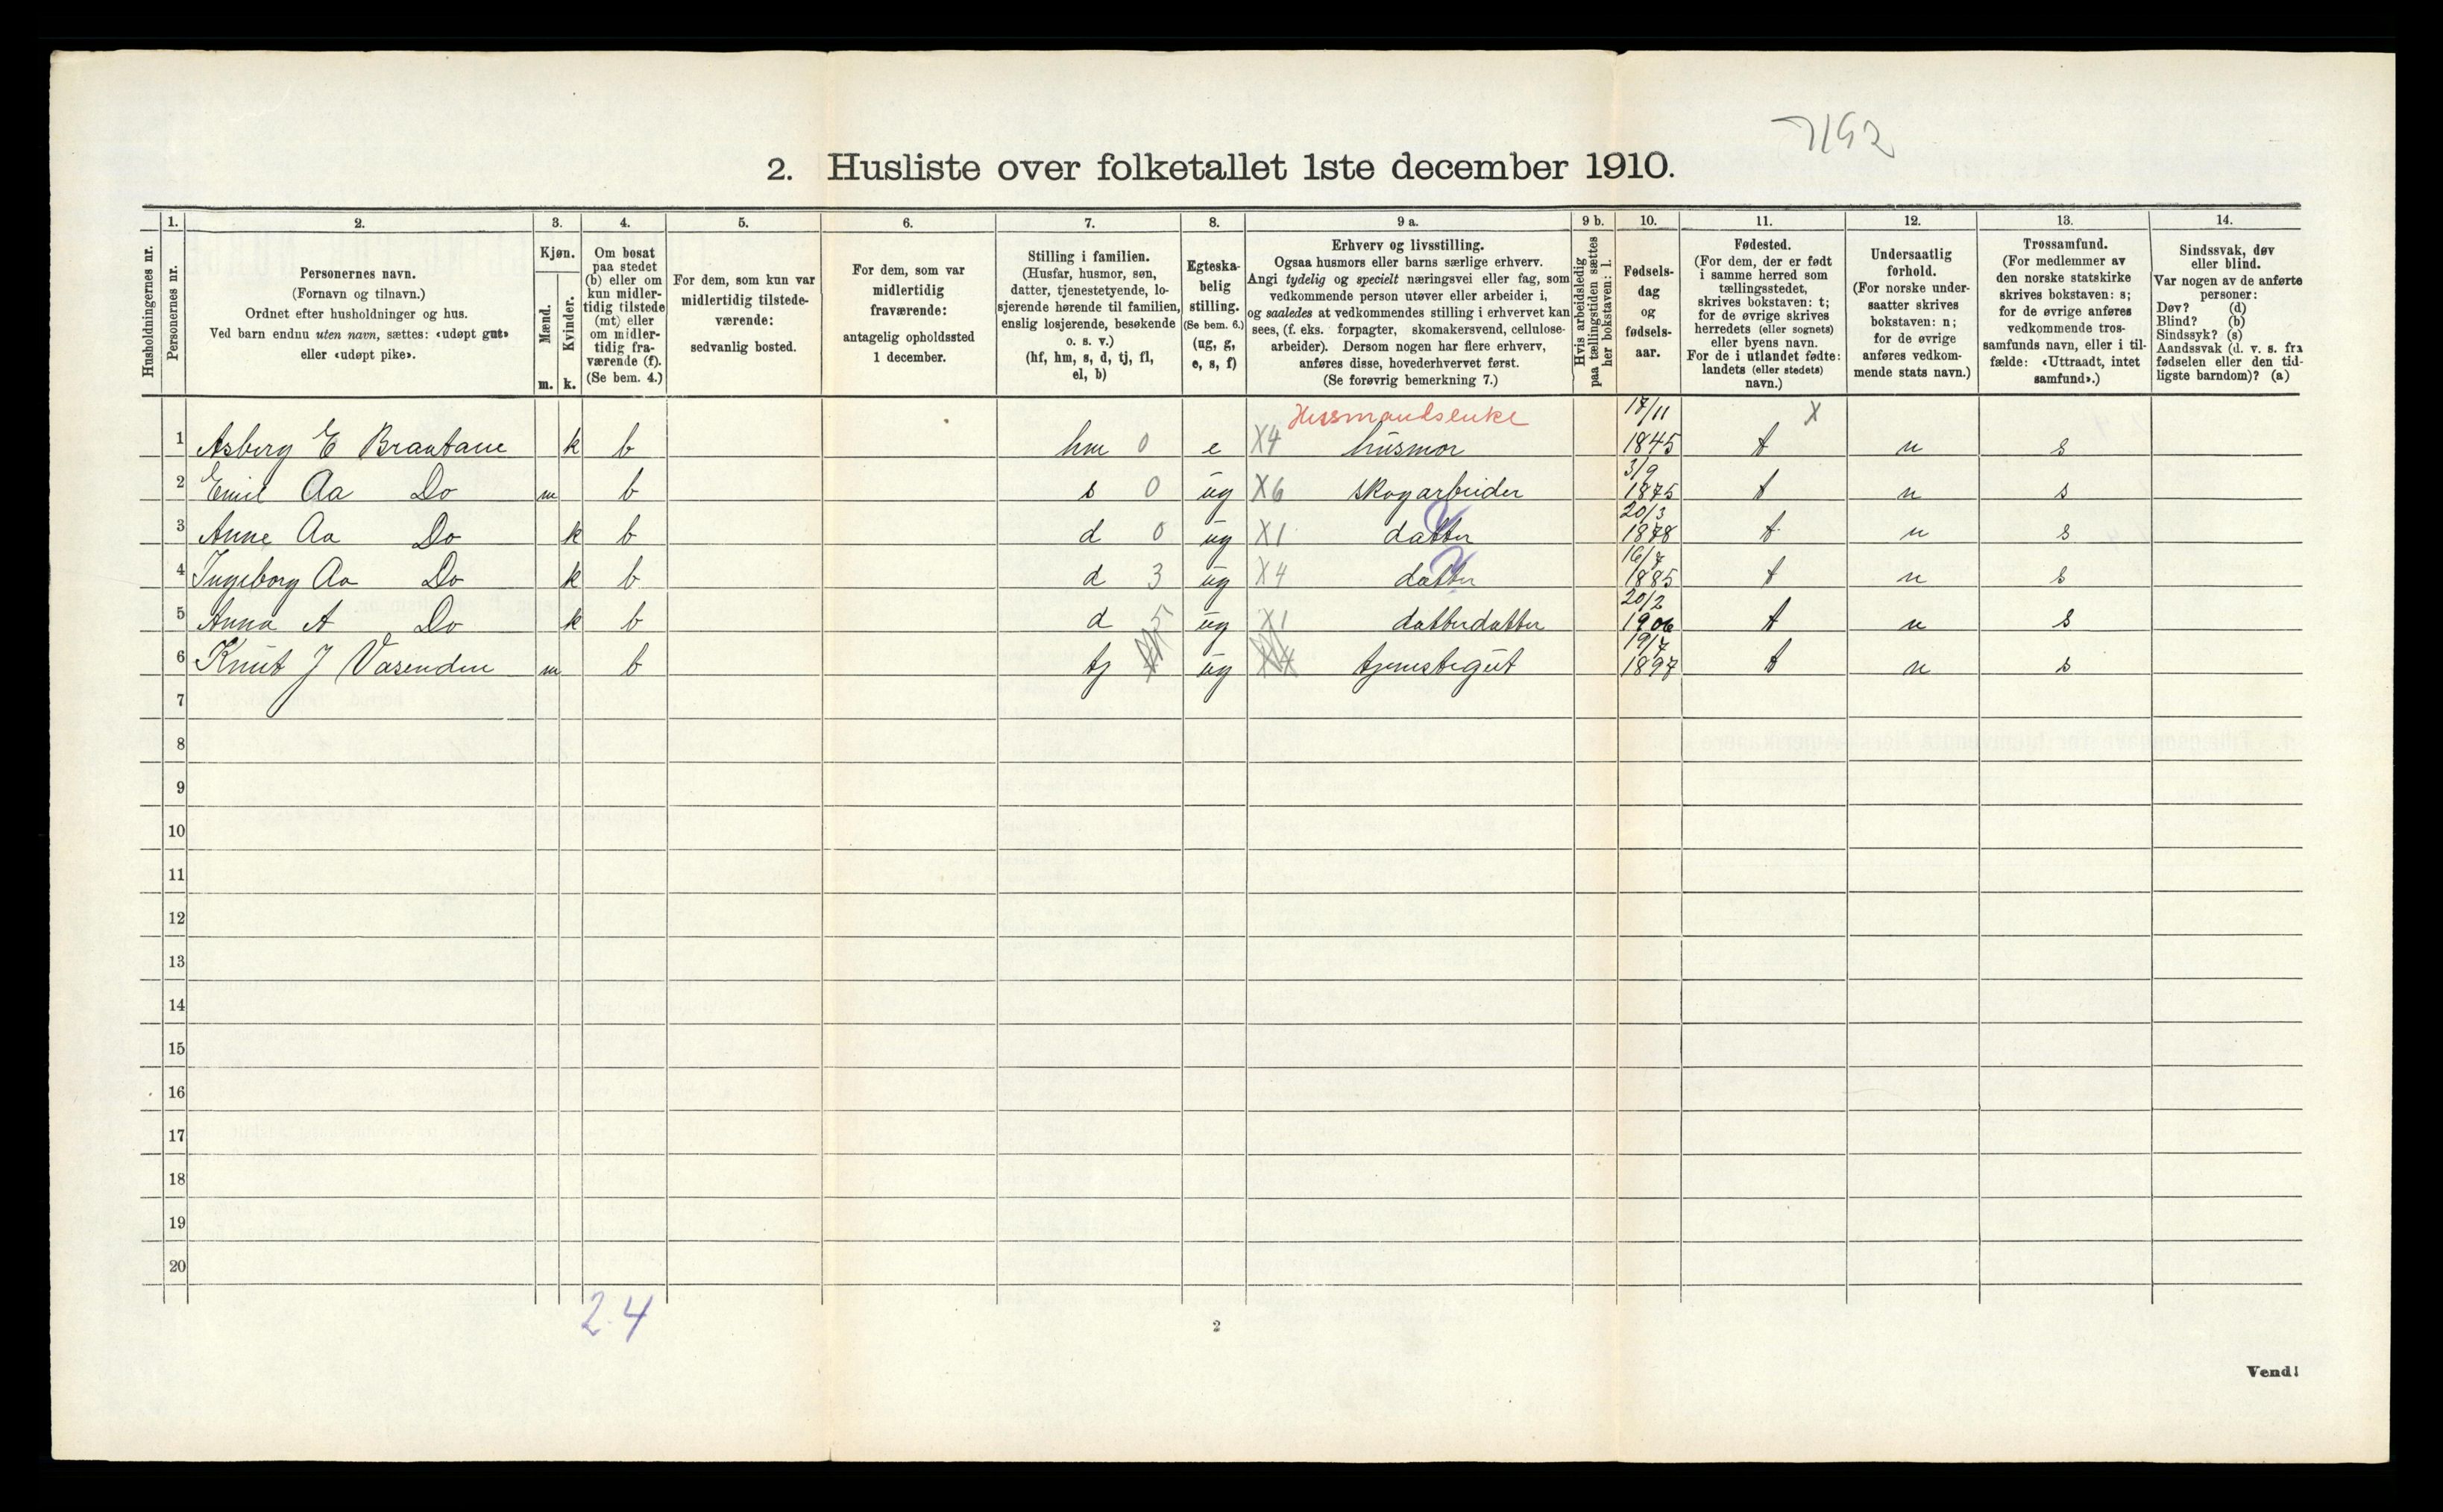 2. Husliste over folketallet 1ste december 1910.
Husholdningernes nr.
1.
Personernes nr.
2.
Personernes navn.
(Fornavn og tilnavn.)
Ordnet efter husholdninger og hus.
Ved barn endnu uten navn, sættes: «udøpt gut»
eller «udøpt pike».
3.
Kjøn.
Mænd.
m.
Kvinder.
k.
4.
Om bosat
paa stedet
(b) eller om
kun midler-
tidig tilstede
(mt) eller
om midler-
tidig fra-
værende (f).
(Se bem. 4.)
5.
For dem, som kun var
midlertidig tilstede-
værende:
sedvanlig bosted.
6.
For dem, som var
midlertidig
fraværende:
antagelig opholdssted
1 december.
7.
Stilling i familien.
(Husfar, husmor, søn,
datter, tjenestetyende, lo-
sjerende hørende til familien,
enslig losjerende, besøkende
o. s. v.)
(hf, hm, s, d, tj, fl,
el, b)
8.
Egteska-
belig
stilling.
(Se bem. 6.)
(ug, g,
e, s, f)
9 a.
Erhverv og livsstilling.
Ogsaa husmors eller barns særlige erhverv.
Angi tydelig og specielt næringsvei eller fag, som
vedkommende person utøver eller arbeider i,
og saaledes at vedkommendes stilling i erhvervet kan
sees, (f. eks. forpagter, skomakersvend, cellulose-
arbeider). Dersom nogen har flere erhverv,
anføres disse, hovederhvervet først.
(Se forøvrig bemerkning 7.)
9 b.
Hvis arbeidsledig
paa tællingstiden sættes
her bokstaven: l.
10.
Fødsels-
dag
og
fødsels-
aar.
11.
Fødested.
(For dem, der er født
i samme herred som
tællingsstedet,
skrives bokstaven: t;
for de øvrige skrives
herredets (eller sognets)
eller byens navn.
For de i utlandet fødte:
landets (eller stedets)
navn.)
12.
Undersaatlig
forhold.
(For norske under-
saatter skrives
bokstaven: n;
for de øvrige
anføres vedkom-
mende stats navn.)
13.
Trossamfund.
(For medlemmer av
den norske statskirke
skrives bokstaven: s;
for de øvrige anføres
vedkommende tros-
samfunds navn, eller i til-
fælde: «Uttraadt, intet
samfund».)
14.
Sindssvak, døv
eller blind.
Var nogen av de anførte
personer:
Døv? (d)
Blind? (b)
Sindssyk? (s)
Aandssvak (d. v. s. fra
fødselen eller den tid-
ligste barndom)? (a)
Husmandsenke 17/11 X
1 Asberg E Brautane k b hm 0 e X4 husmor 1845 t n s
3/9
2 Emil Aa Do m b s 0 ug X6 skogarbeider 1875 t n s
20/3
3 Anne Aa Do k b d 0 ug X1 datter 1878 t n s
16/7
4 Ingeborg Aa Do k b d 3 ug X4 datter 1885 t n s
20/2
5 Anna A Do k b d 5 ug X1 datterdatter 1906 t n s
19/7
6 Knut J Vasenden m b tj ug X4 tjenestegut 1897 t n s
7
8
9
10
11
12
13
14
15
16
17
18
19
20
2 4
2
Vend!